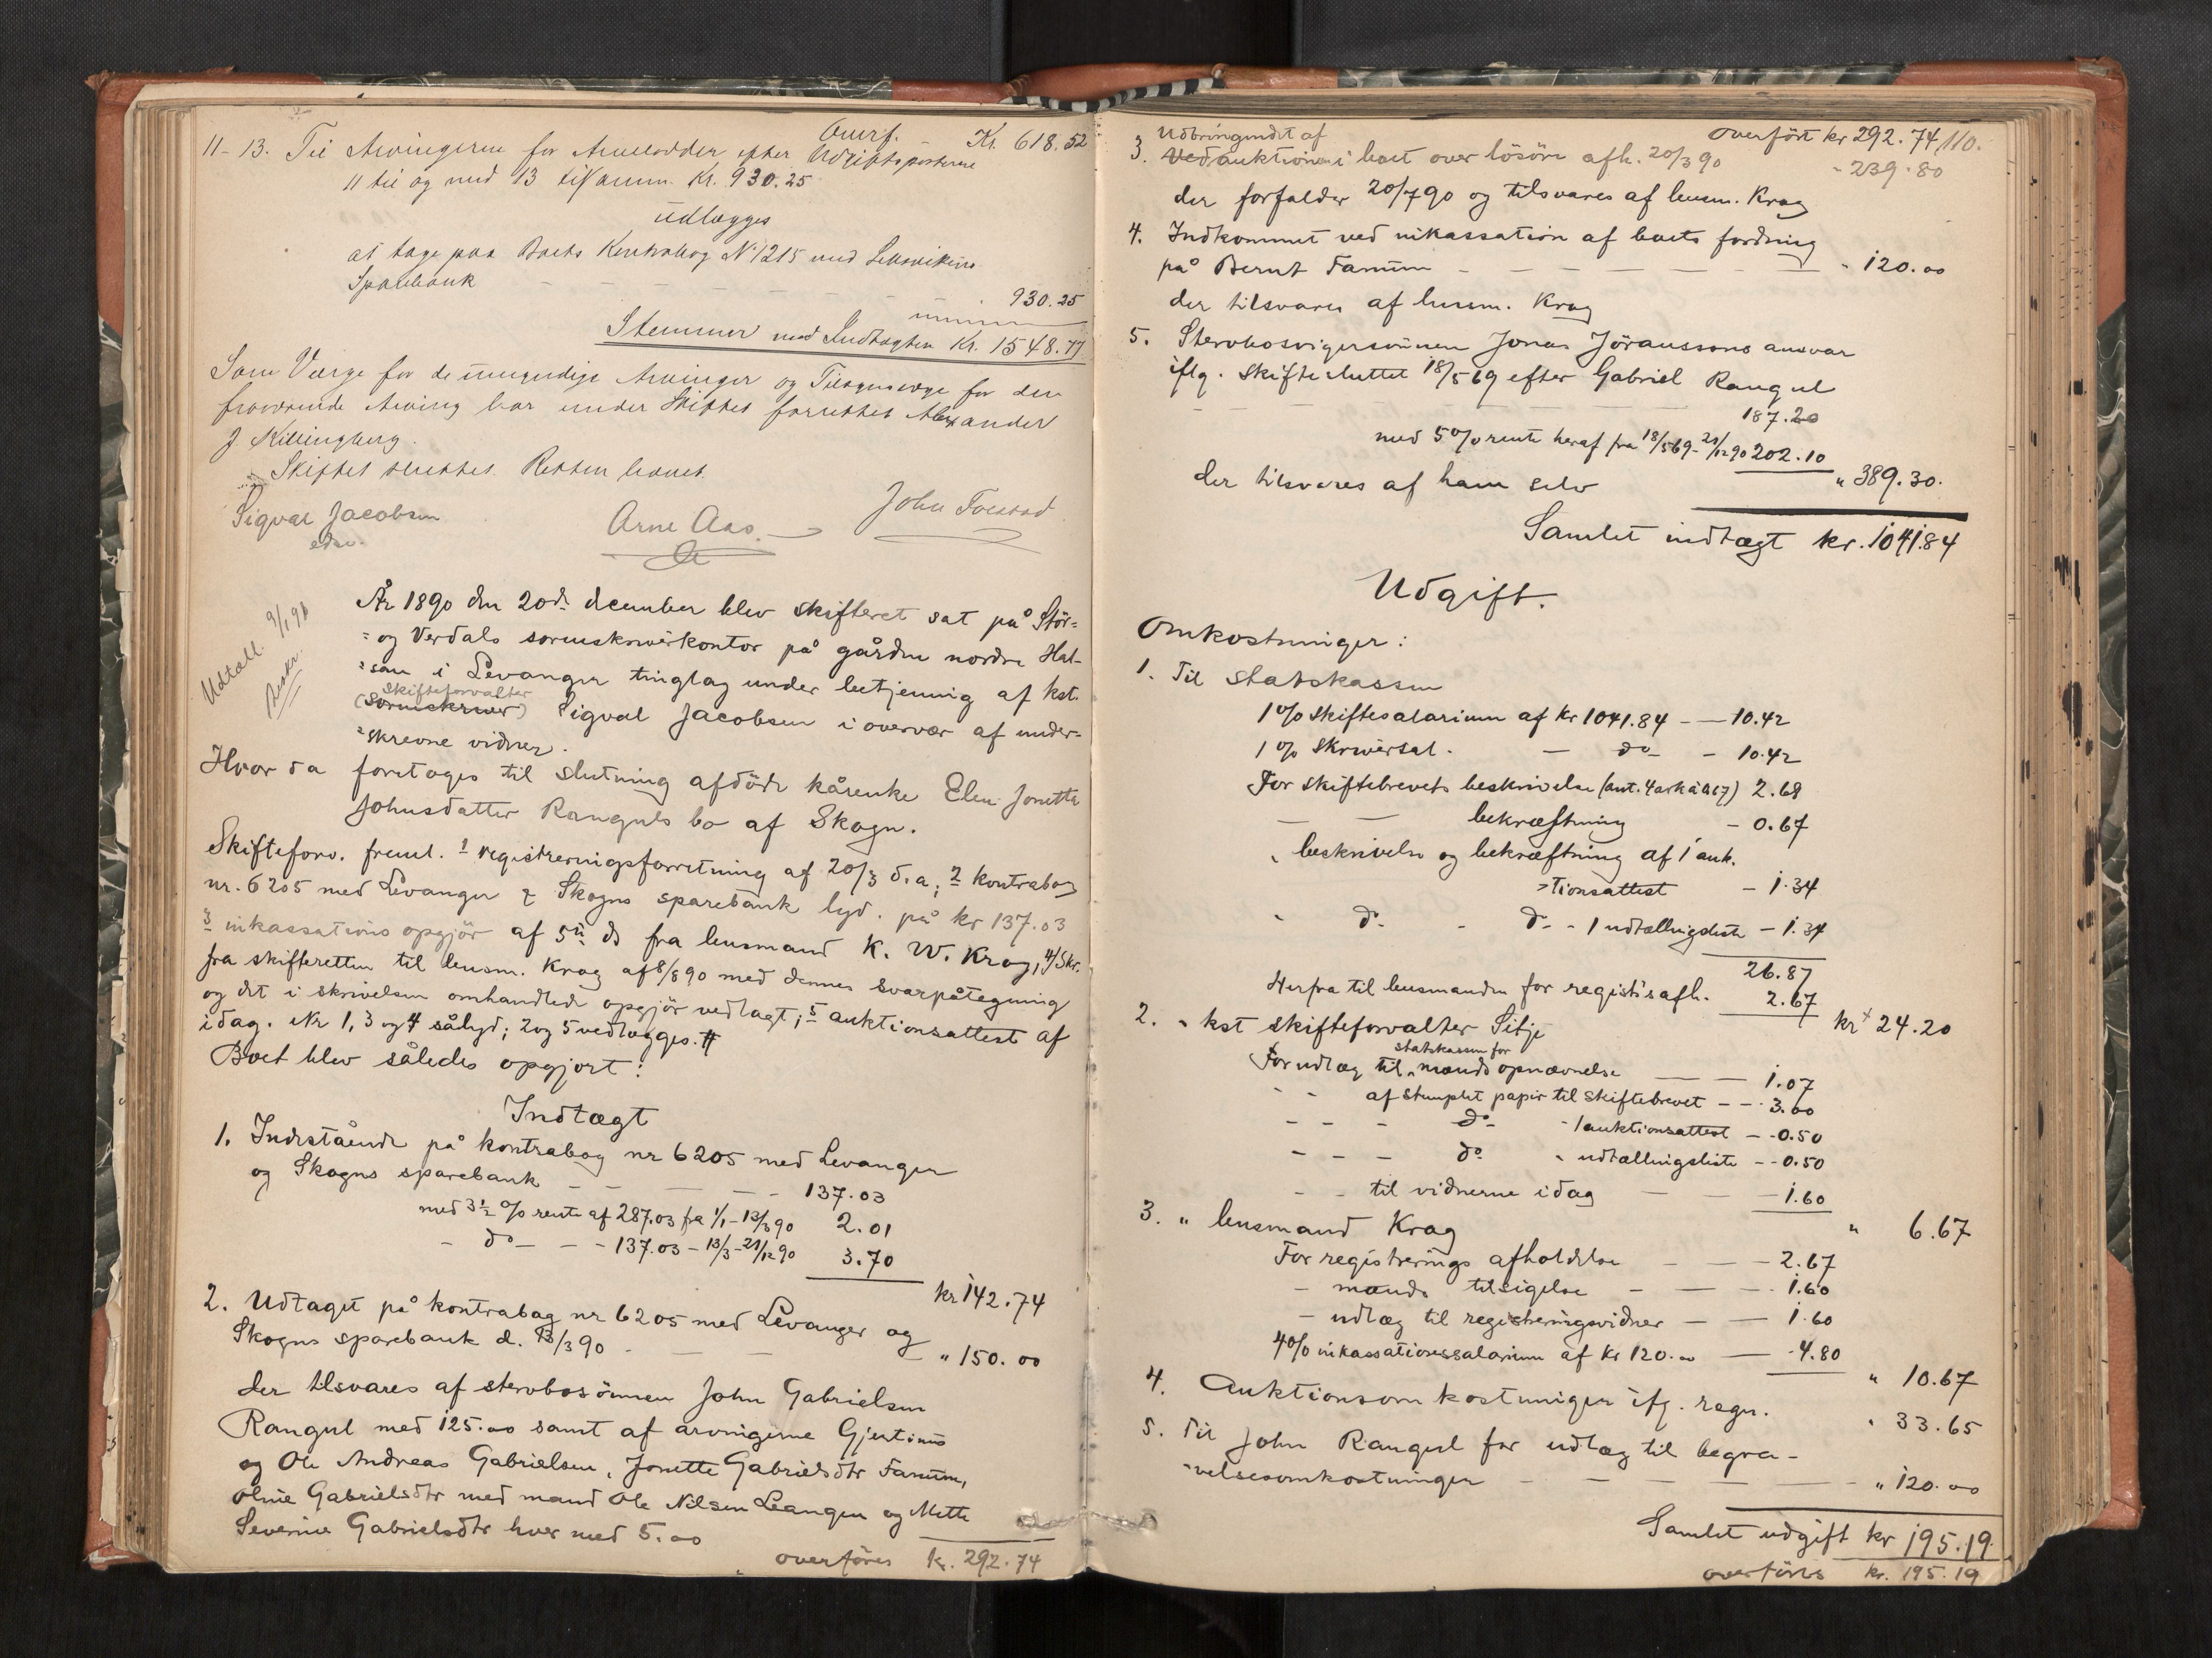 Overf. - Kr. 618.52
11-13. Til Arvingerne for Arvelodder efter Udgiftsposterne
11 til og med 13 tilsamm. Kr. 930.25
udlægges
at tage paa Boets Kontrabog No 1215 med Leksvikens
Sparebank - - - - - - - 930.25
Stemmer med Indtægten Kr. 1548.77
Som Værge for de umyndige Arvinger og Tilsynsværge for den
fraværende Arving har under Skiftet forrettet Alexander
J. Killingberg.
Skiftet sluttet. Retten hævet.
Sigval Jacobsen
edsv.
Arne Aas.
John Toldstad
Udtall. 9/1 91
beskr.
År 1890 den 20de december blev skifteret sat på Stör-
og Verdals sorenskriverkontor på gården nordre Hal-
san i Levanger tinglag under betjening af kst.
skifteforvalter
(sorenskriver) Sigval Jacobsen i overvær af under-
skrevne vidner.
Hvor da foretoges til slutning afdöde kårenke Elen Jonetta
Johnsdatter Ranguls bo af Skogn.
Skifteforv. freml. 1 registreringsforretning af 20/3 d.a; 2 kontrabog
nr. 6205 med Levanger & Skogns sparebank lyd. på kr 137.03
3 inkassations opgjör af 5te ds fra lensmand K. W. Krag, 4/ Skr.
fra skifteretten til lensm. Krag af 8/8 90 med dennes svarpåtegning
og det i skrivelsen omhandlede opgjör vedlagt; 5 auktionsattest af
idag. Nr 1, 3 og 4 sålyd; 2 og 5 vedlægges. #
Boet blev således opgjort:
Indtægt
1. Indestående på kontrabog nr 6205 med Levanger
og Skogns sparebank - - - - - 137.03
med 3½ % rente af 287.03 fra 1/1-13/3 90 2.01
- do - - - 137.03 - 13/3-21/12 90 3.70
kr 142.74
2. Udtaget på kontrabog nr 6205 med Levanger og
Skogns sparebank d. 13/3 90 - - - " 150.00
der tilsvares af stervbosönnen John Gabrielsen
Rangul med 125.00 samt af arvingerne Gjertinus
og Ole Andreas Gabrielsen, Jonette Gabrielsdtr Fanum,
Oline Gabrielsdtr med mand Ole Nilsen Leangen og Mette
Severine Gabrielsdtr hver med 5.00
overföres kr. 292.74
overfört kr 292.74
110.
Udbringendet af
3. Ved auktionen i boet over lösöre afh. 20/3 90 - 239.80
der forfalder 20/7 90 og tilsvares af lensm. Krag
4. Indkommet ved inkassation af boets fordring
på Bernt Fanum - - - - - - - 120.00
der tilsvares af lensm. Krag
5. Stervbosvigersönnen Jonas Jöranssons ansvar
iflg. skifte sluttet 18/5 69 efter Gabriel Rangul
- - - - 187.20
med 5 % rente heraf fra 18/5 69-21/12 90 202.10
der tilsvares af ham selv " 389.30.
Samlet indtægt kr. 1041.84
Udgift.
Omkostninger:
1. Til statskassen
1 % skiftesalarium af kr 1041.84 - - 10.42
1 % skriversal. - do - - 10.42
For skiftebrevets beskrivelse (ant. 4 ark à 0.67) 2.68
- - bekræftning - 0.67
" beskrivelse og bekræftning af 1 auk-
tionsattest - 1.34
" do - do - 1 udtællingsliste - 1.34
26.87
Herfra til lensmanden for registr's afh. 2.67
kr 24.20
2. " kst skifteforvalter Selje
statskassen for
For udlæg til mænds opnævnelse - - 1.07
- - af stemplet papir til skiftebrevet - - 3.00
- - - do - 1 auktionsattest - - 0.50
- - - do " udtællingsliste - - 0.50
- - til vidnerne idag - - - 1.60
" 6.67
3. " lensmand Krag
For registrerings afholdelse - - - 2.67
- mænds tilsigelse - - - 1.60
- udlæg til registreringsvidner - - 1.60
4 % inkassationssalarium af kr 120.00 - - 4.80
" 10.67
4. Auktionsomkostninger ifg. regn. " 33.65
5. Til John Rangul for udlæg til begra-
velsesomkostninger - - - - - " 120.00
Samlet udgift kr 195.19
overföres kr. 195.19